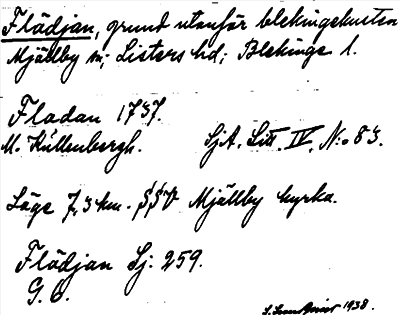 Flädjan, grund utanför blekingekusten
Mjällby sn; Listers hd; Blekinge l.
Fladan 1737.
M. Küllenbergh. SjA. Litt. IV, N:o 83.
Läge 7,3 km. SSV Mjällby kyrka.
Flädjan Sj. 259.
G. O.
1938.